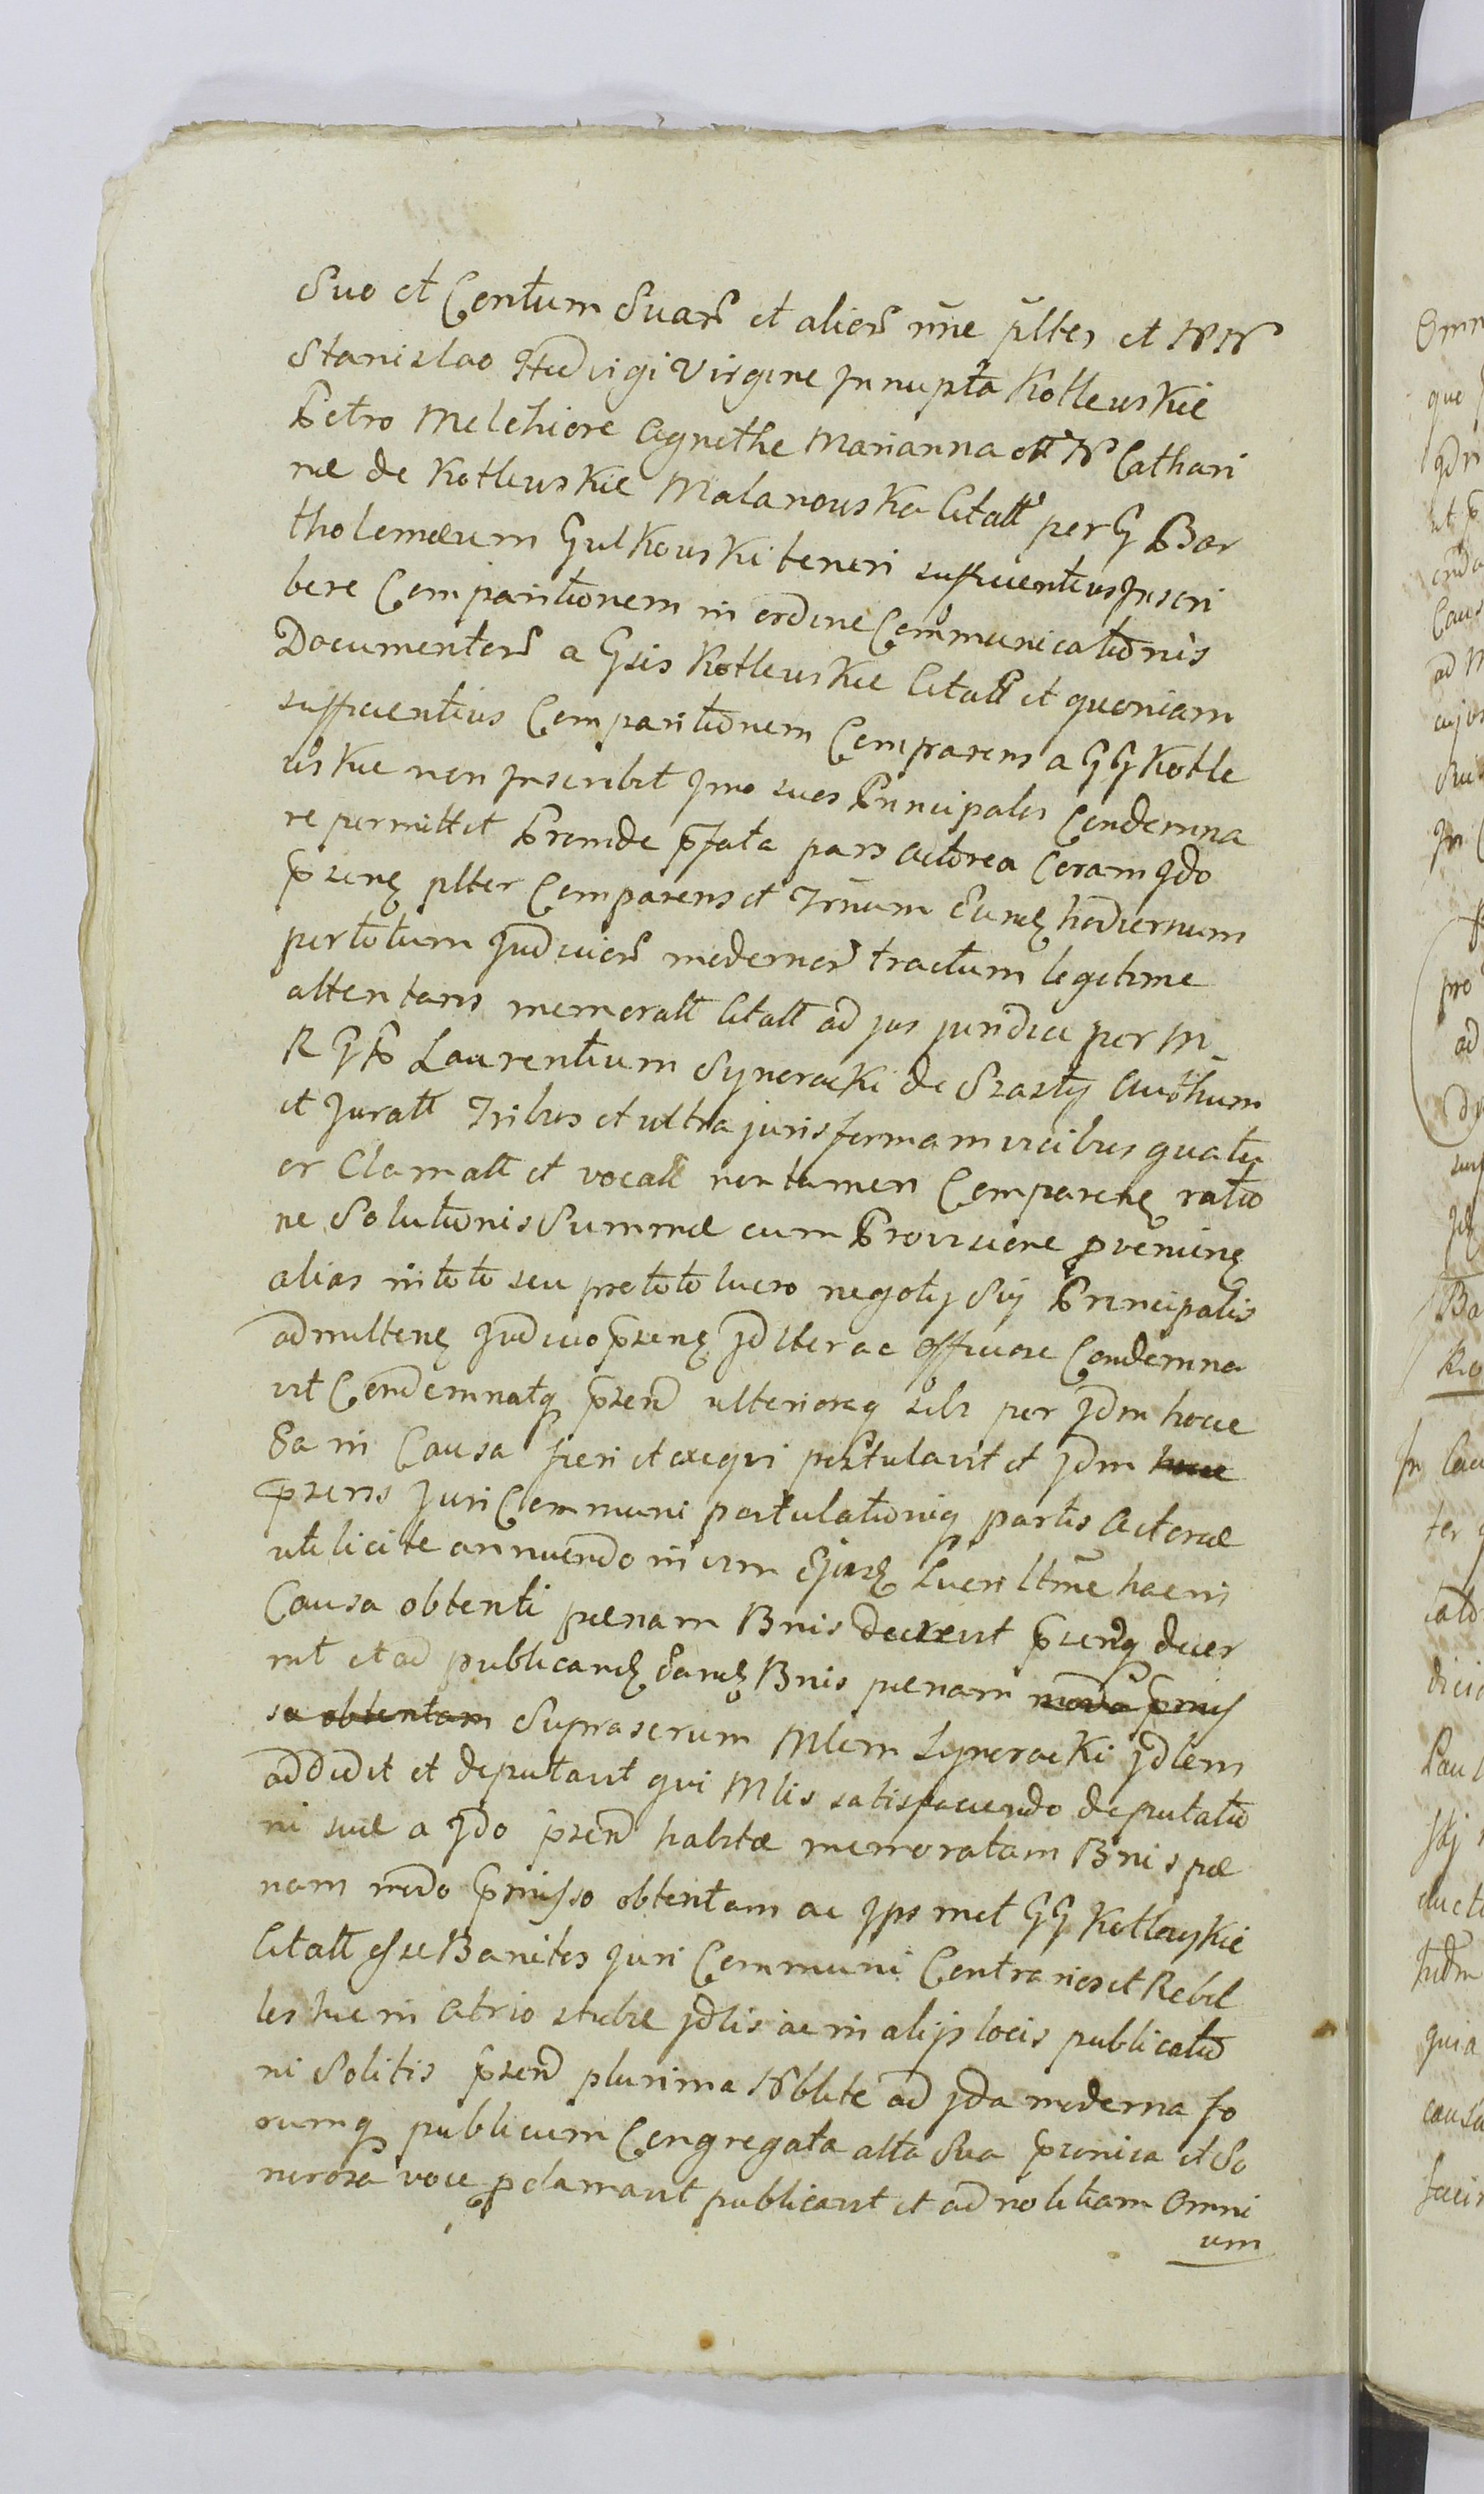 Suo et Centum Suar et alior nne pltes et NN
Stanislao Hedvigi Virgine Jnnupta Kotlewskie
Petro Melchiore Agnethe Marianna ett N Cathari
næ de Kotlewskie Malanowska Citatt per G Bar
tholemæum Gulkowski teneri sufficientius Jnscri
bere Comparitionem in ordine Communicationis
Documentor a Gsis Kotlewskie Citatt et quoniam
sufficientius Comparitionem Comparens a GG Kotle
wskie non Jnscribit Jmo suos Principales Condemna
re permittit Proinde pfata pars Actorea Coram Jdo
psenq plter Comparens et Trnum Eunq hodiernum
per totum Judicior modernor tractum legitime
attentans memoratt Citatt ad jus juridice per M
RGP Laurentium Synoracki de Srzasty Authum
et Juratt Tribus et ultra juris formam vicibus quatu
or Clamatt et vocatt non tamen Comparenq ratio
ne Solutionis Summæ cum Provisione pvenienq
alias in toto seu pro toto lucro negotij Sij Principalis
admittenq Judicio psenq Jdlter ac officiose Condemna
vit Condemnatq psen ulterioreq sibi per Jdm hocce
Ea in Causa fieri et exequi postulavit et Jdm hocce
psens Juri Communi postulationiq partis Actoreæ
uti licite annuendo in vim Ejusq Lucri ltme hac in
Causa obtenti pænam Bnis decrevit psenq decer
nit et ad publicanq Eanq Bnis pænam modo pmis
sa obtentam Suprascrum Mlem Synoracki Jdlem
addidit et deputavit qui Mlis satisfaciendo deputatio
ni suæ a Jdo psen habitæ memoratam Bnis pæ
nam modo pmisso obtentam ac Jpsmet GG Kotlewskie
Citatt esse Banitos Juri Communi Contrarios et Rebel
les hic in Atrio stubæ Jdlis ac in alijs locis publicatio
ni Solitis psen plurima Nblite ad Jda moderna fo
rumq publicum Congregata alta Sua pconica et So
norosa voce pclamavit publicavit et ad notitiam Omni
um